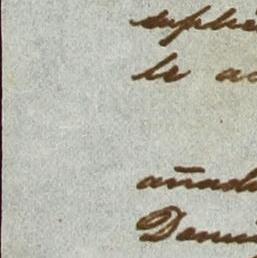 suplic
le ac
añad
Domi